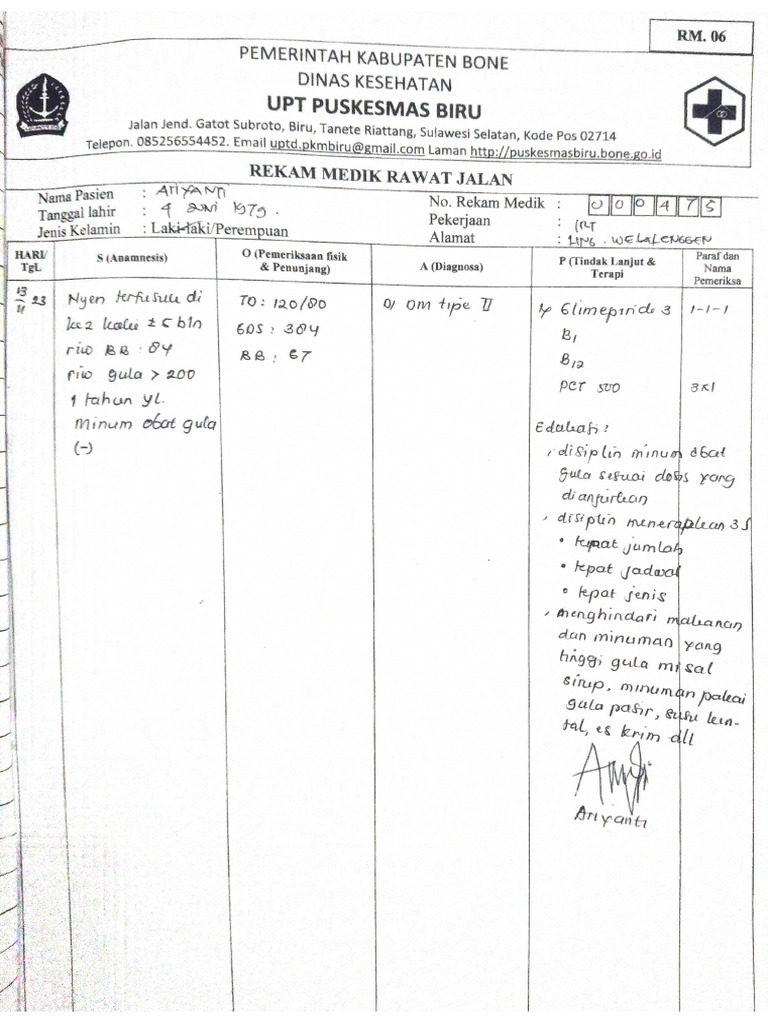 RM. 06
PEMERINTAH KABUPATEN BONE
DINAS KESEHATAN
UPT PUSKESMAS BIRU
Jalan Jend. Gatot Subroto, Biru, Tanete Riattang, Sulawesi Selatan, Kode Pos 02714
Telepon. 085256554452. Email uptd.pkmbiru@gmail.com Laman http://puskesmasbiru.bone.go.id
REKAM MEDIK RAWAT JALAN
Nama Pasien : Ariyanti
Tanggal lahir : 4 Juni 1979.
Jenis Kelamin : Laki-laki/Perempuan
No. Rekam Medik : 000475
Pekerjaan : IRT
Alamat : LING. WELALENGGEN
HARI/ TgL
S (Anamnesis)
O (Pemeriksaan fisik & Penunjang)
A (Diagnosa)
P (Tindak Lanjut & Terapi
Paraf dan Nama Pemeriksa
13/11 23
Nyeri tertusuk di
ke2 kaki ± 5 bln
riw BB : 84
riw gula > 200
1 tahun yl.
Minum obat gula
(-)
TD : 120/80
GDS : 384
BB : 67
DM tipe II
Glimepiride 3 1-1-1
B1
B12
PCT 500 3x1
Edukasi :
, disiplin minum obat
gula sesuai dosis yang
dianjurkan
, disiplin menerapkan 3J
• tepat jumlah
• tepat jadwal
• tepat jenis
, menghindari makanan
dan minuman yang
tinggi gula misal
sirup, minuman pakai
gula pasir, susu ken-
tal, es krim dll
Ariyanti